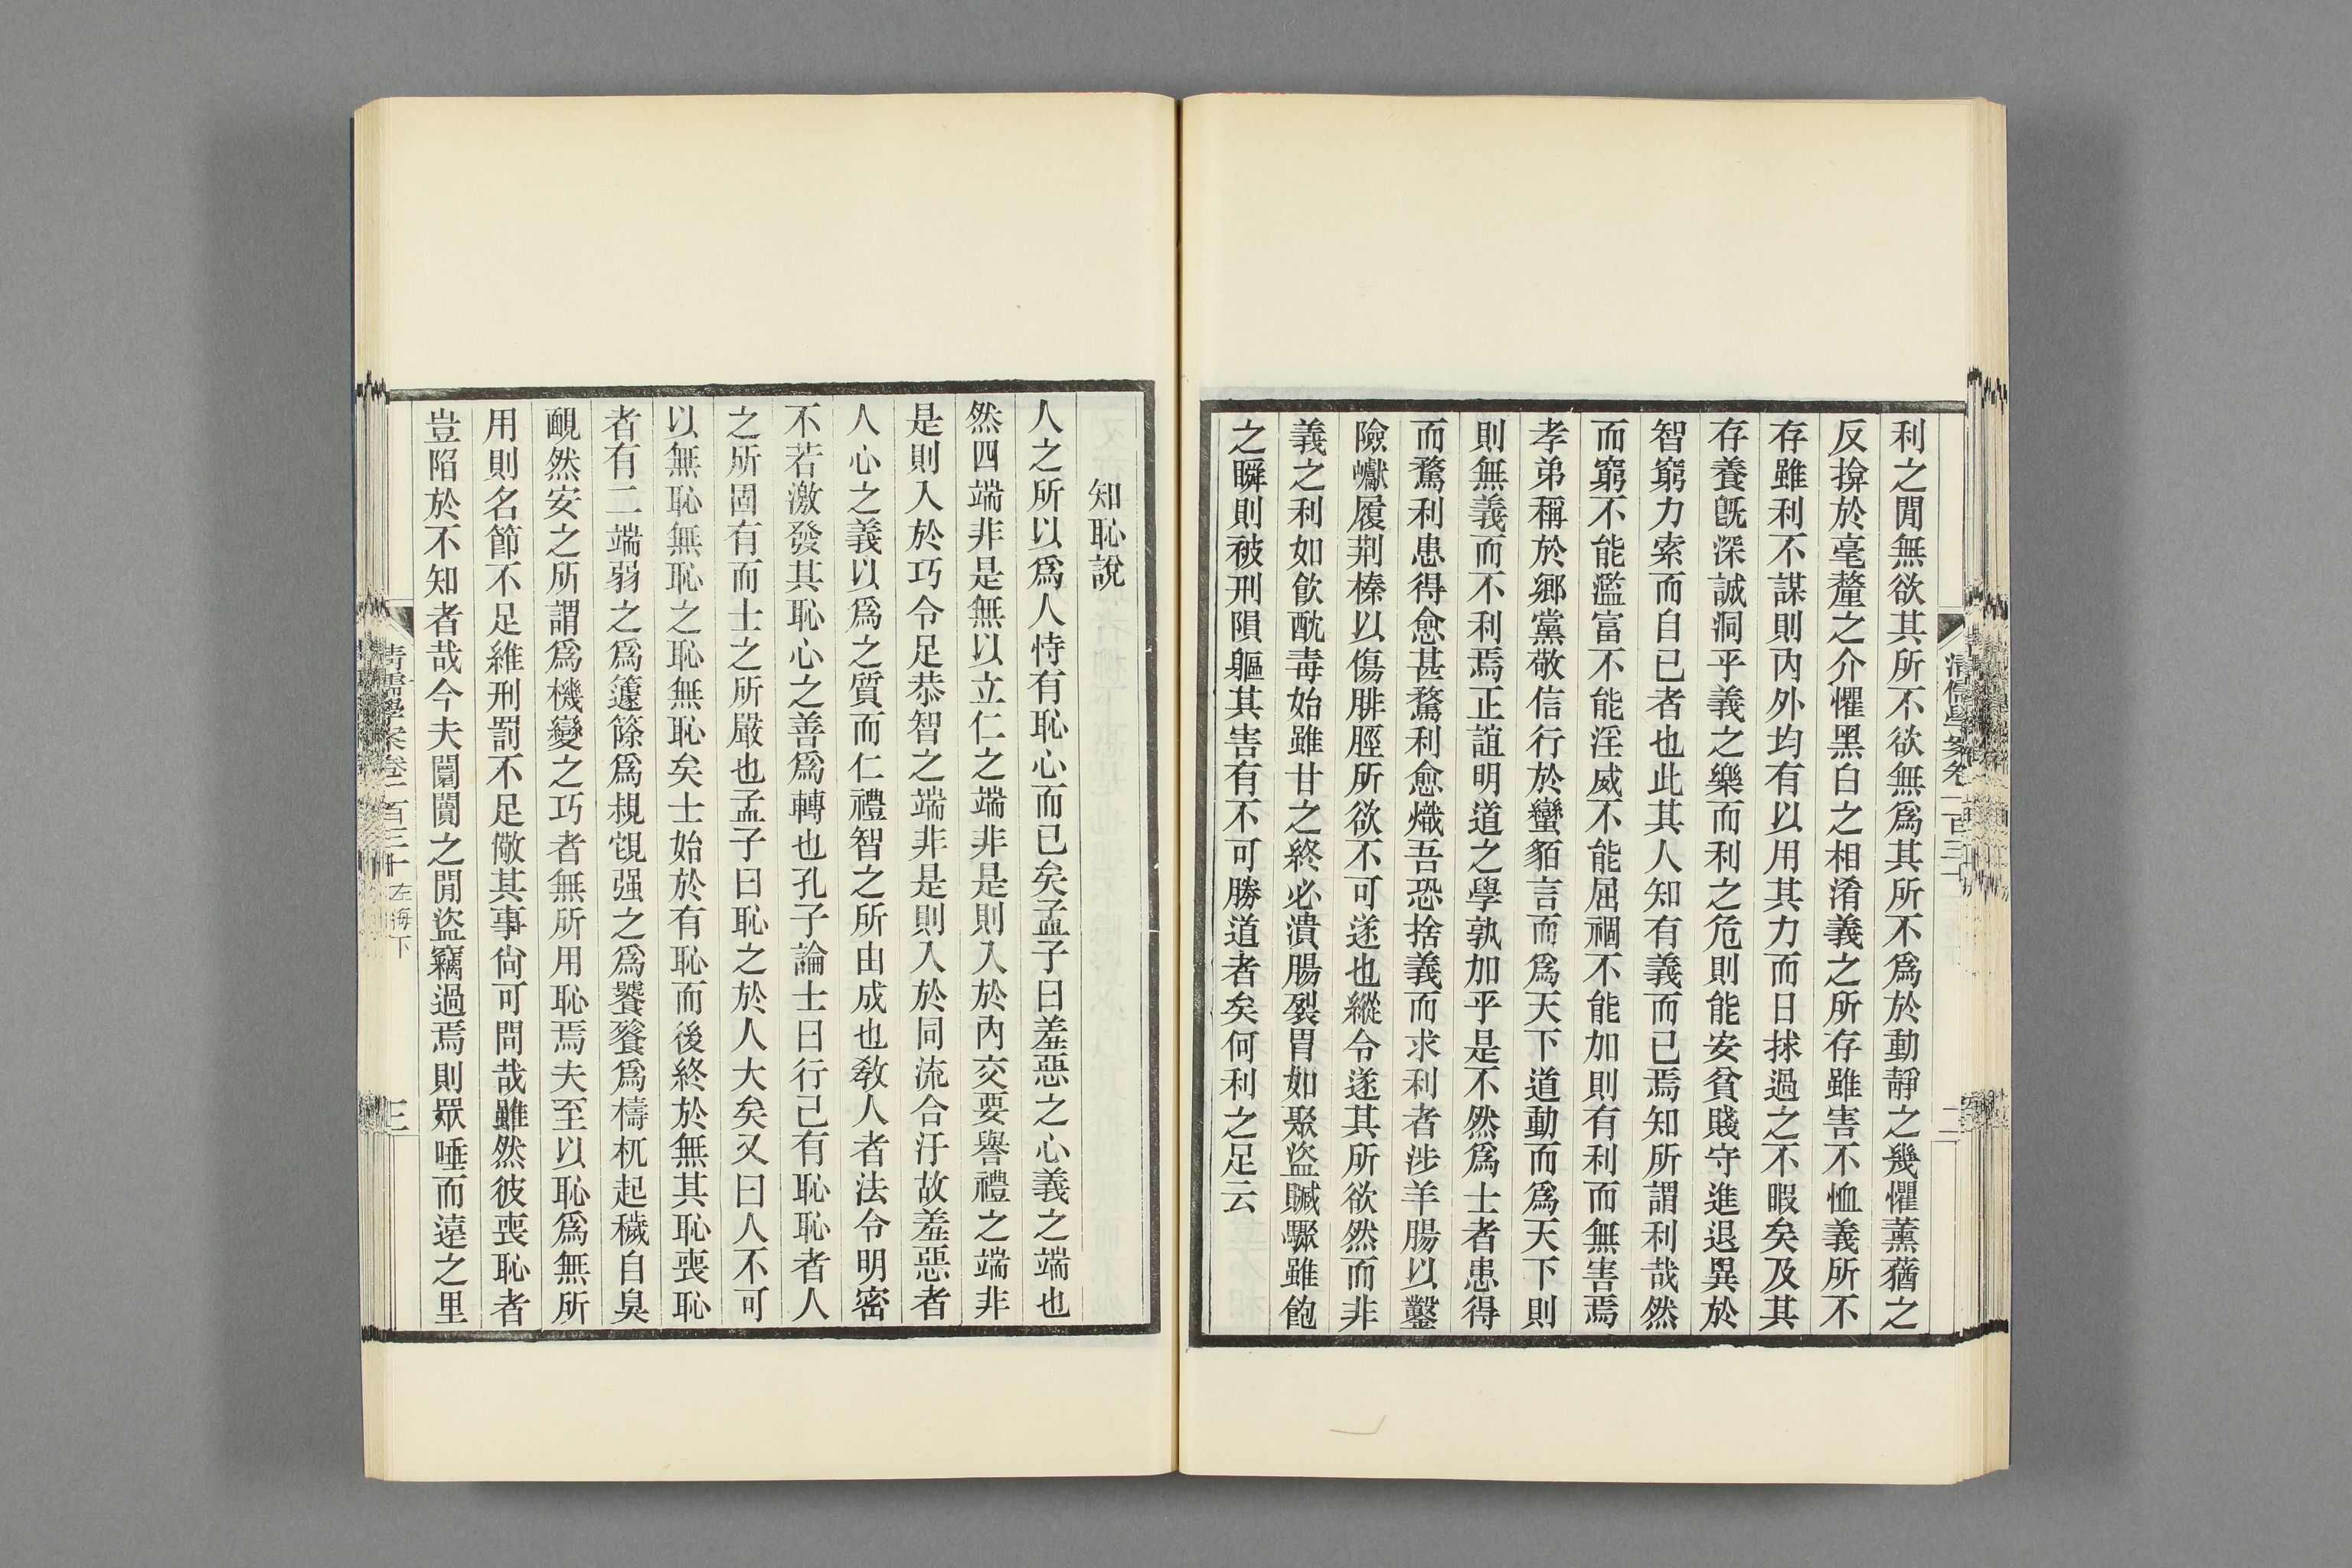 利之閒無欲其所不欲無爲其所不爲於動靜之幾懼薰蕕之
反揜於毫釐之介懼黑白之相淆義之所存雖害不恤義所不
存雖利不謀則內外均有以用其力而日捄過之不暇矣及其
存養旣深誠洞乎義之樂而利之危則能安貧賤守進退異於
智窮力索而自已者也此其人知有義而已焉知所謂利哉然
而窮不能濫富不能淫威不能屈禍不能加則有利而無害焉
孝弟稱於鄉黨敬信行於蠻貊言而爲天下道動而爲天下則
則無義而不利焉正誼明道之學孰加乎是不然爲士者患得
而騖利患得愈甚騖利愈熾吾恐捨義而求利者涉羊腸以鑿
險巇履荆榛以傷腓脛所欲不可遂也縱令遂其所欲然而非
義之利如飲酖毒始雖甘之終必潰腸裂胃如聚盜贓驟雖飽
之瞬則被刑隕軀其害有不可勝道者矣何利之足云
清儒學案卷一百三十
二
知恥說
人之所以爲人恃有恥心而已矣孟子曰羞惡之心義之端也
然四端非是無以立仁之端非是則入於內交要譽禮之端非
是則入於巧令足恭智之端非是則入於同流合汙故羞惡者
人心之義以爲之質而仁禮智之所由成也敎人者法令明密
不若激發其恥心之善爲轉也孔子論士曰行己有恥恥者人
之所固有而士之所嚴也孟子曰恥之於人大矣又曰人不可
以無恥無恥之恥無恥矣士始於有恥而後終於無其恥喪恥
者有二端弱之爲籧篨爲覢覕强之爲饕餮爲檮杌起穢自臭
靦然安之所謂爲機變之巧者無所用恥焉夫至以恥爲無所
用則名節不足維刑罰不足儆其事尙可問哉雖然彼喪恥者
豈陷於不知者哉今夫闤闠之閒盜竊過焉則眾唾而遠之里
清儒學案卷一百三十 左海下
三